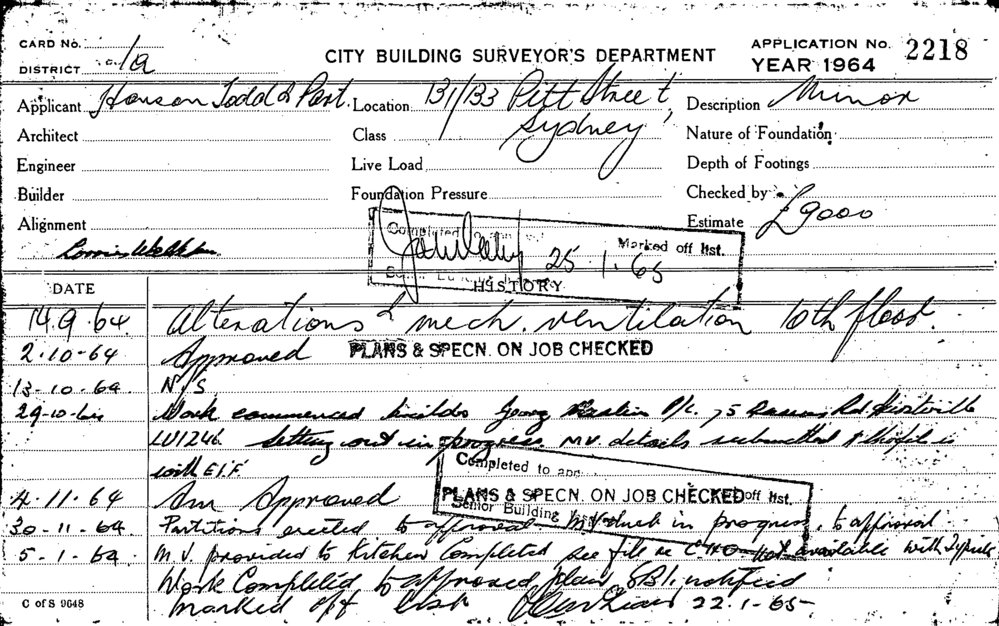 CARD No.
DISTRICT 1a
CITY BUILDING SURVEYOR'S DEPARTMENT
APPLICATION No. 2218
YEAR 1964
Applicant Hanson Todd & Part. Location 131/133 Pitt Street, Description Minor
Sydney
Architect Class Nature of Foundation
Engineer Live Load Depth of Footings
Builder Foundation Pressure Checked by
Alignment Estimate £9000
Completed Marked off list.
25.1.65
DATE HISTORY
14.9.64 Alterations & mech. ventilation 10th floor.
2.10-64 Approved PLANS & SPECN. ON JOB CHECKED
13-10-64 N/S
29-10- Work commenced builder P/L 75 Rd.
LU1246 Setting out in progress MV. details submitted & is
with E.I.F.
4.11.64 Am Approved
Completed to
PLANS & SPECN. ON JOB CHECKED off list.
Senior Building
30-11-64 Partitions erected to approval MV duct in progress to approval
5-1-64 M.V. provided to Kitchen Completed see file re not available with
Work Completed to approved plan notified
marked off list 22.1-65
C of S 9648